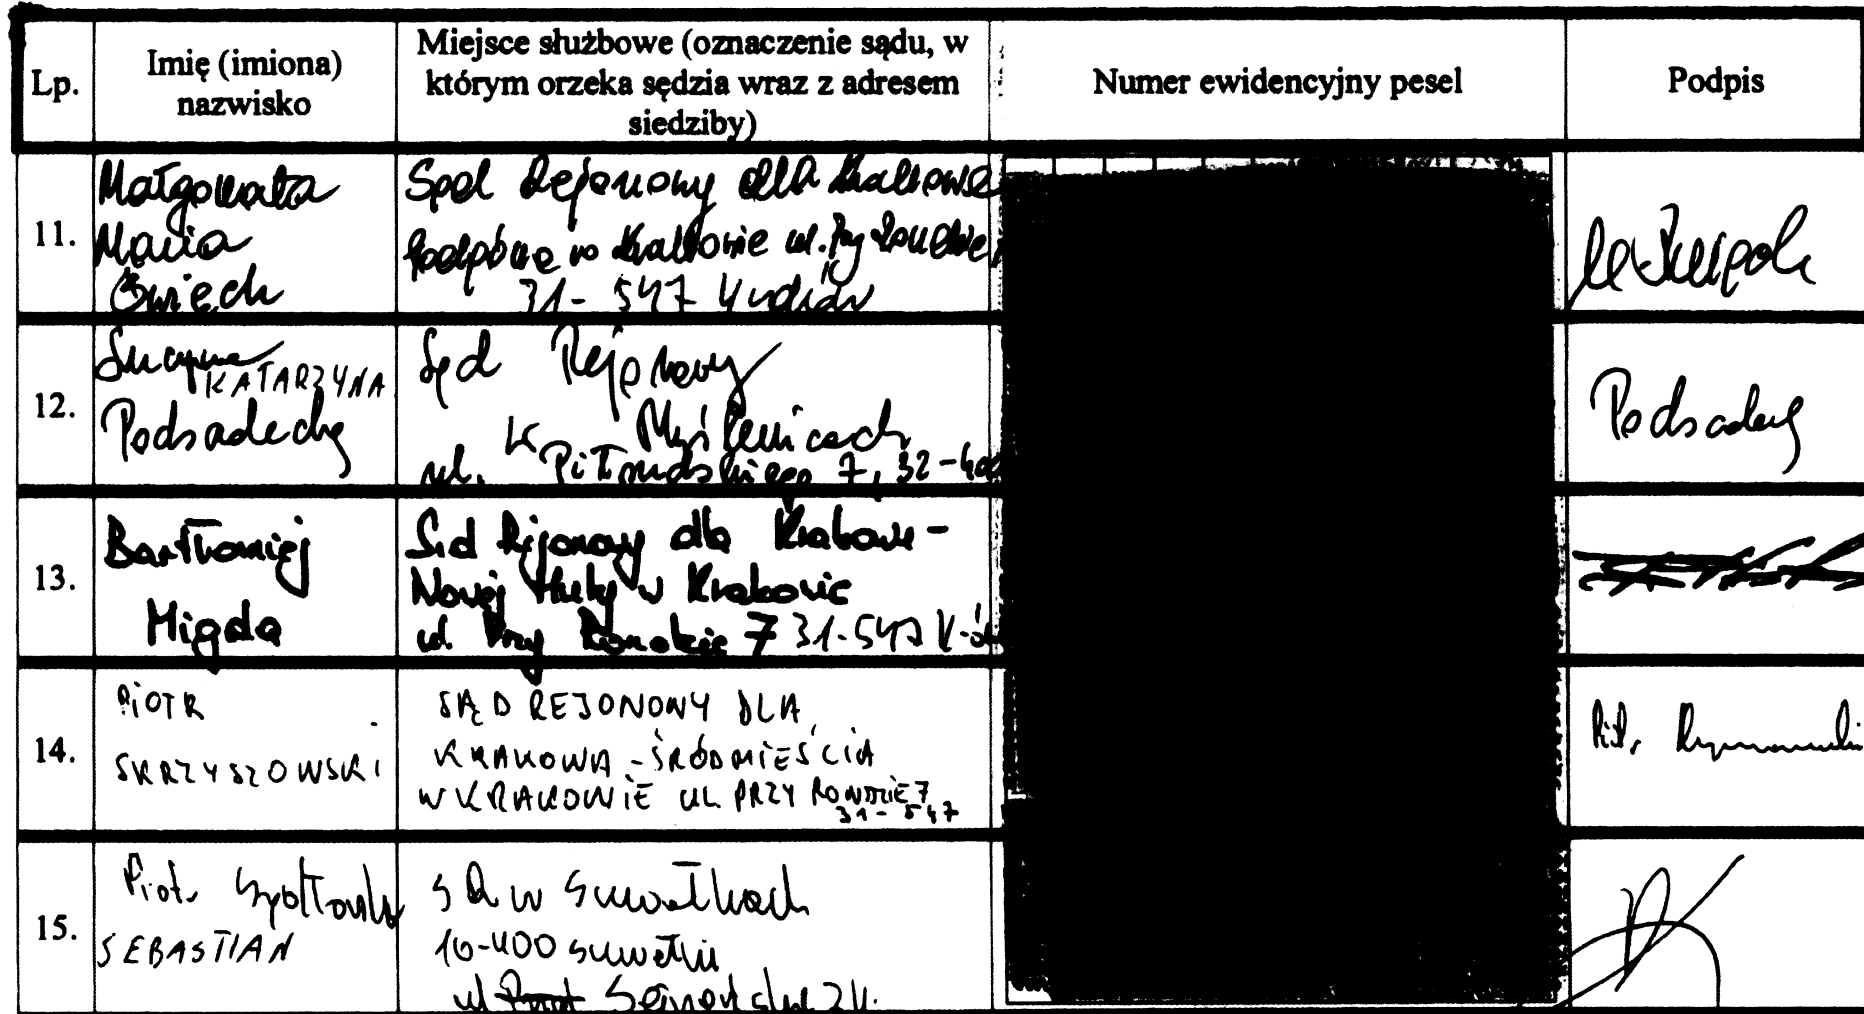 Lp.
Imię (imiona)
nazwisko
Miejsce służbowe (oznaczenie sądu, w
którym orzeka sędzia wraz z adresem
siedziby)
Numer ewidencyjny pesel
Podpis
11.
Małgorzata
Maria
Ćwiech
Sąd Rejonowy dla Krakowa
Podgórza w Krakowie ul. Przy Rondzie
31-547 Kraków
12.
Lucyna
KATARZYNA
Podsadecka
Sąd Rejonowy
w Myślenicach
ul. Piłsudskiego 7, 32-400
Podsadecka
13.
Bartłomiej
Migda
Sąd Rejonowy dla Krakowa-
Nowej Huty w Krakowie
ul. Przy Rondzie 7 31-547 K-ów
14.
PIOTR
SKRZYSZOWSKI
SĄD REJONOWY DLA
KRAKOWA-ŚRÓDMIEŚCIA
W KRAKOWIE UL. PRZY RONDZIE 7
31-547
Piotr
15.
Piotr
SEBASTIAN
SR w Suwałkach
16-400 Suwałki
ul.